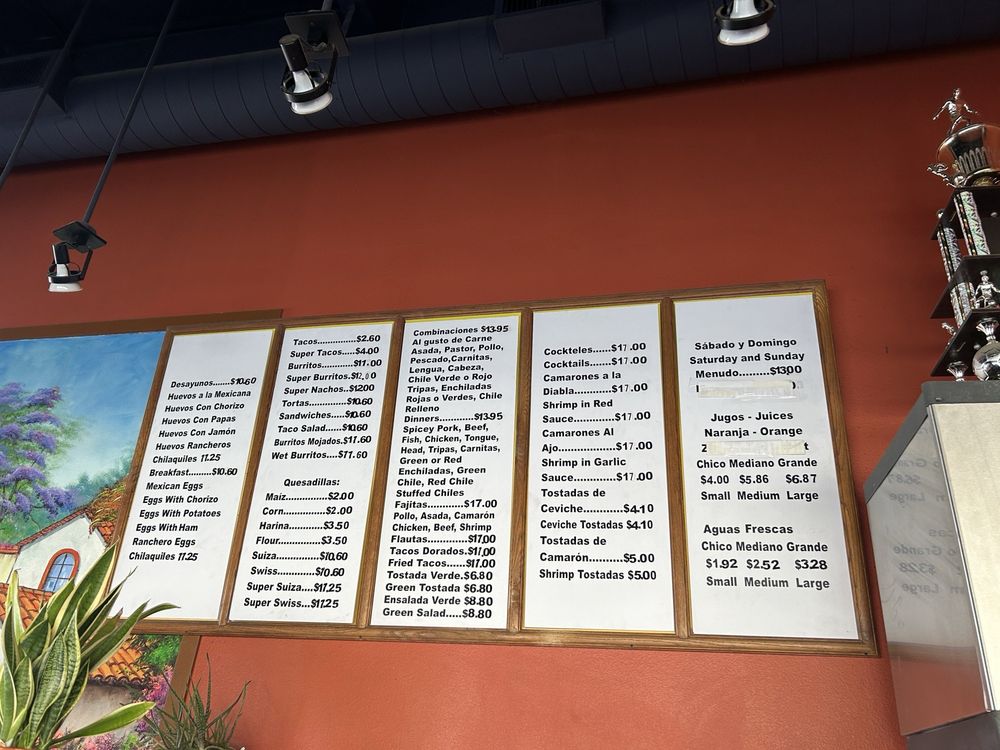 Desayunos.....$10.60
Huevos a la Mexicana
Huevos Con Chorizo
Huevos Con Papas
Huevos Con Jamón
Huevos Rancheros
Chilaquiles 11.25
Breakfast.........$10.60
Mexican Eggs
Eggs With Chorizo
Eggs With Potatoes
Eggs With Ham
Ranchero Eggs
Chilaquiles 11.25
Tacos...............$2.60
Super Tacos.....$4.00
Burritos............$11.00
Super Burritos.$12.60
Super Nachos..$12.00
Tortas................$10.60
Sandwiches.....$10.60
Taco Salad......$10.60
Burritos Mojados.$11.60
Wet Burritos....$11.60
Quesadillas:
Maíz................$2.00
Corn................$2.00
Harina.............$3.50
Flour...............$3.50
Suiza................$10.60
Swiss...............$10.60
Super Suiza....$11.25
Super Swiss...$11.25
Combinaciones $13.95
Al gusto de Carne
Asada, Pastor, Pollo,
Pescado,Carnitas,
Lengua, Cabeza,
Chile Verde o Rojo
Tripas, Enchiladas
Rojas o Verdes, Chile
Relleno
Dinners.............$13.95
Spicey Pork, Beef,
Fish, Chicken, Tongue,
Head, Tripas, Carnitas,
Green or Red
Enchiladas, Green
Chile, Red Chile
Stuffed Chiles
Fajitas.............$17.00
Pollo, Asada, Camarón
Chicken, Beef, Shrimp
Flautas..............$17.00
Tacos Dorados.$17.00
Fried Tacos......$17.00
Tostada Verde.$6.80
Green Tostada $6.80
Ensalada Verde $8.80
Green Salad.....$8.80
Cockteles.......$17.00
Cocktails........$17.00
Camarones a la
Diabla.............$17.00
Shrimp in Red
Sauce..............$17.00
Camarones Al
Ajo..................$17.00
Shrimp in Garlic
Sauce..............$17.00
Tostadas de
Ceviche...........$4.10
Ceviche Tostadas $4.10
Tostadas de
Camarón.........$5.00
Shrimp Tostadas $5.00
Sábado y Domingo
Saturday and Sunday
Menudo..........$13.00
Jugos - Juices
Naranja - Orange
Chico Mediano Grande
$4.00 $5.86 $6.87
Small Medium Large
Aguas Frescas
Chico Mediano Grande
$1.92 $2.52 $3.28
Small Medium Large